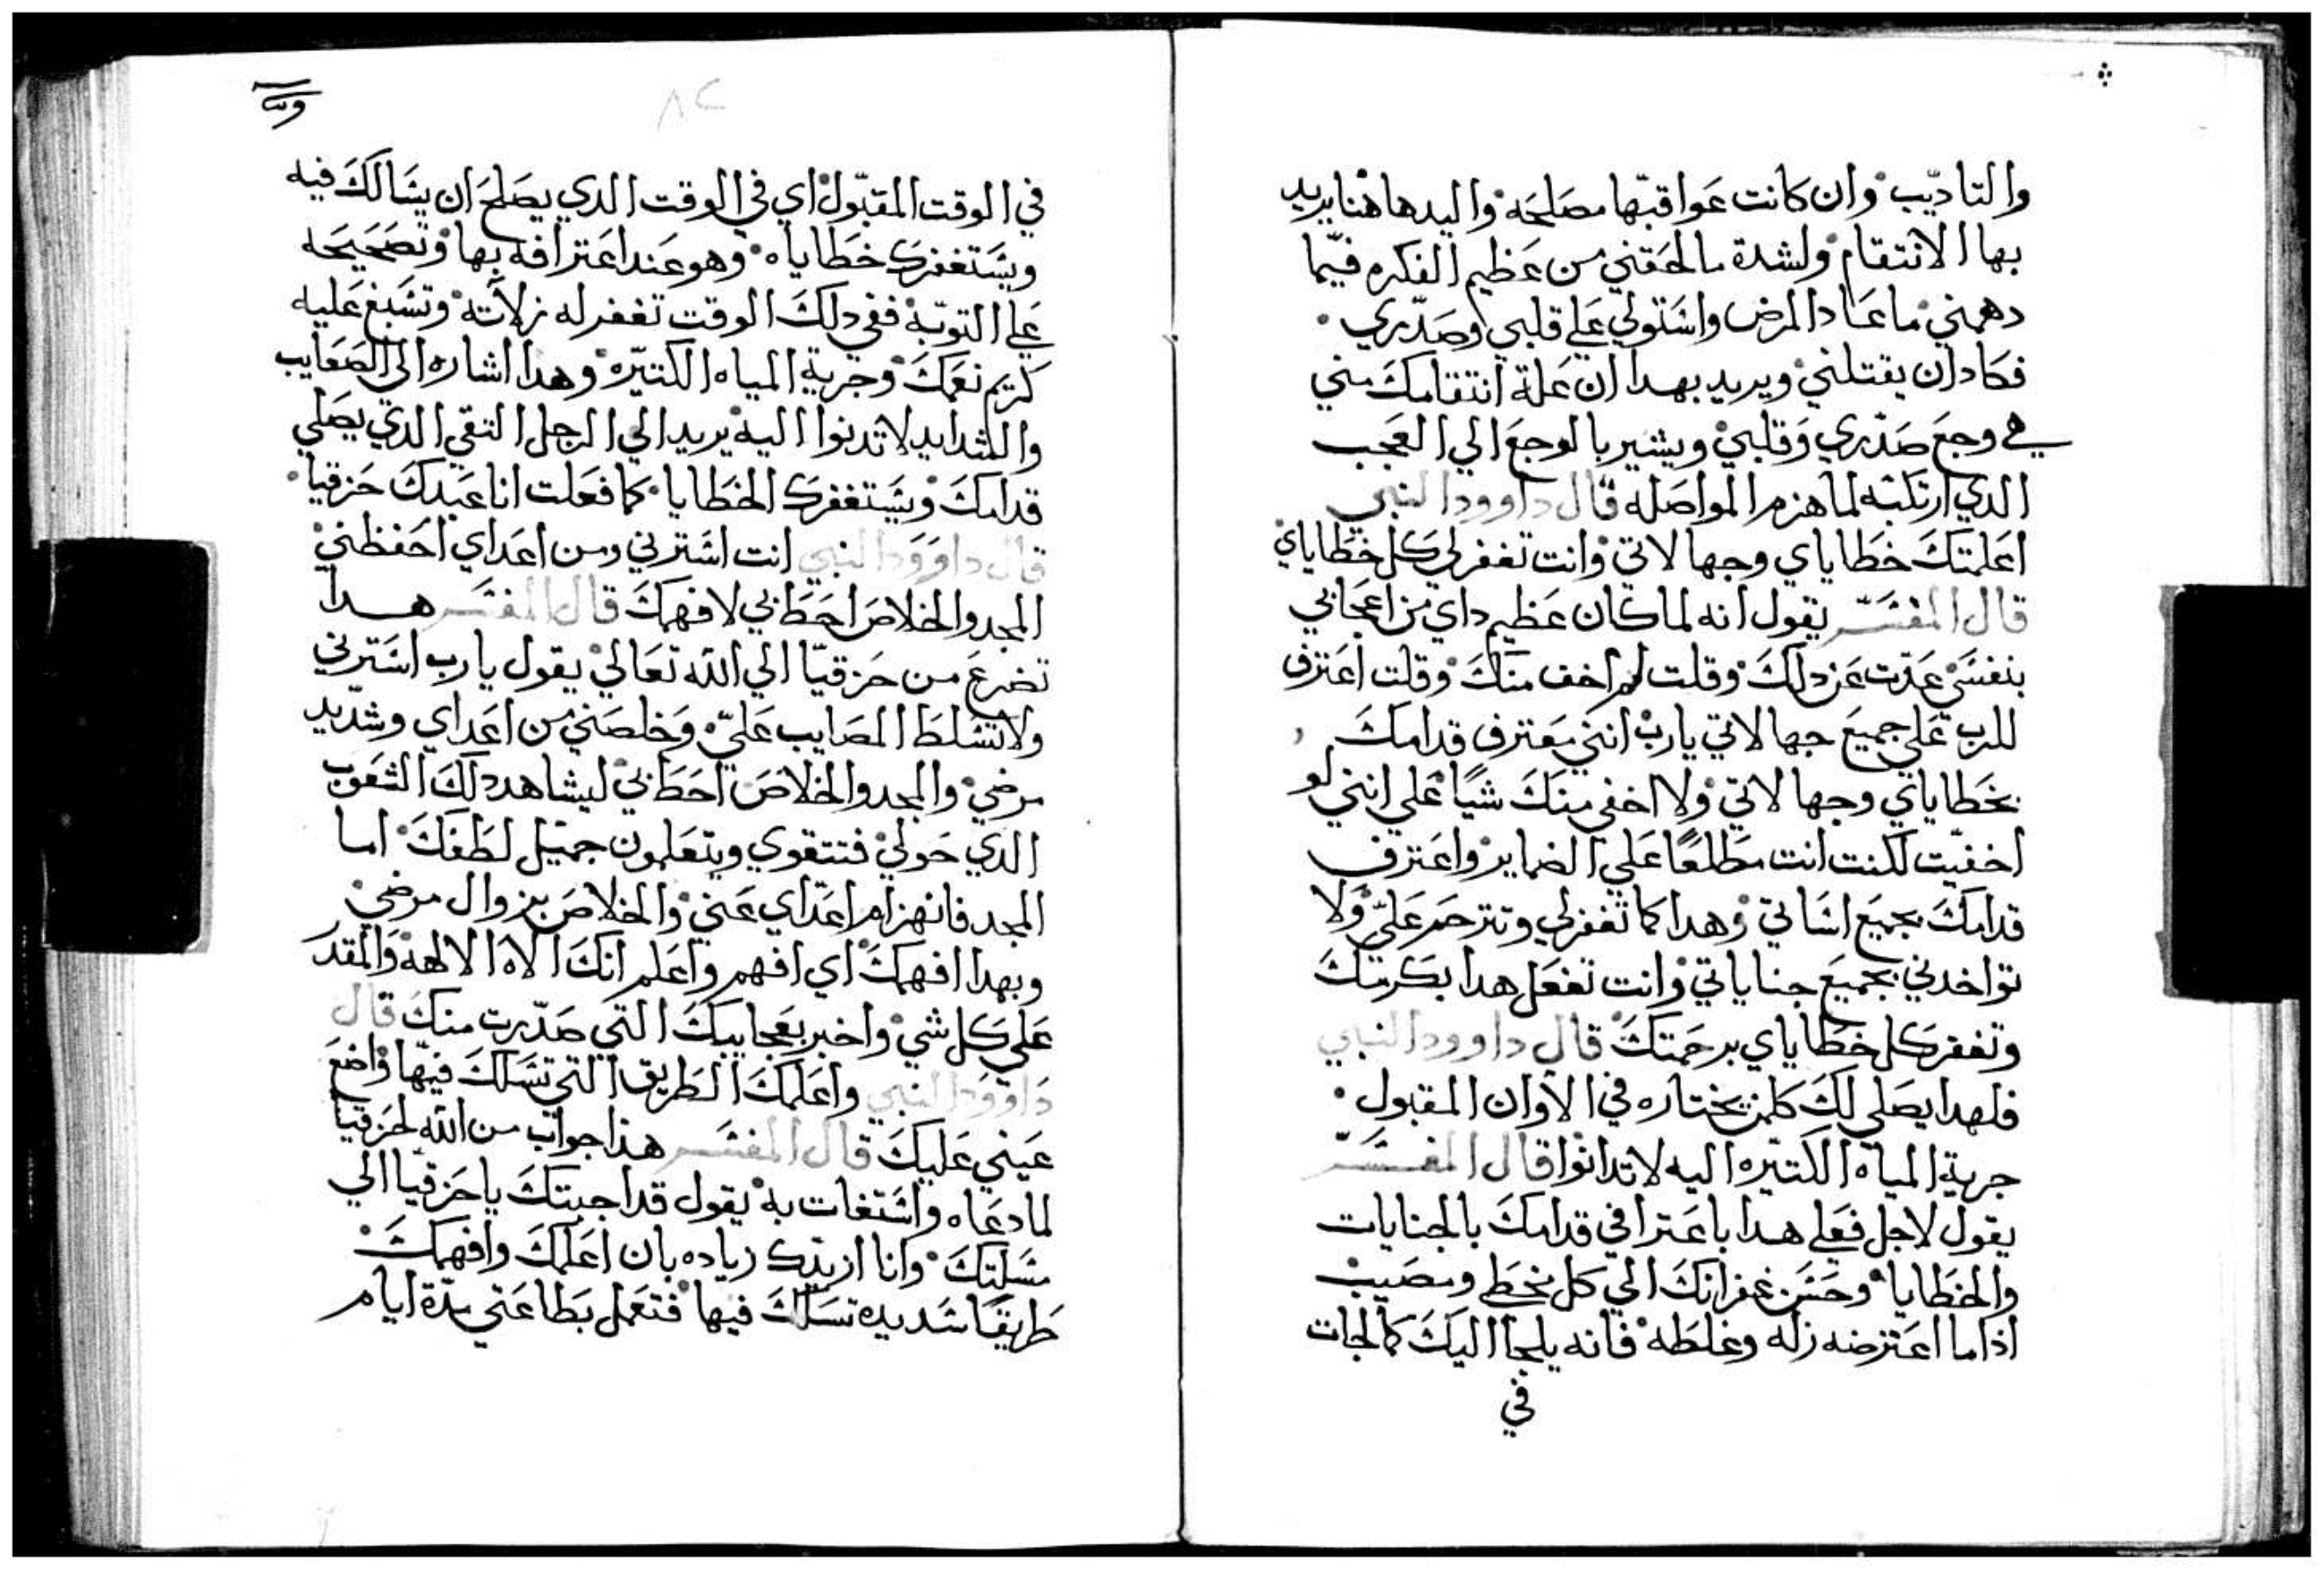 والتاديب وان كانت عواقبها مصلحه واليدهاهنا يريد
بها الانتقام ولشدة مالحقني من عظيم الفكره فيما
دهمني ماعاد المرض واستولي علي قلبي وصدري
فكادان يقتلني ويريد بهدا ان علة انتقامك مني
في وجع صدري وقلبي ويشير بالوجع الي العجب
الدي ارتكبته لما هزم المواصله قال داوود النبي
اعلمتك خطاياي وجهالاتي وانت تغفرلي كل خطاياي
قال المفسر يقول انه لما كان عظيم داي من اعجابي
بنفسي عدت عن دلك وقلت لم اخف منك وقلت اعترف
للرب علي جميع جهالاتي يارب انني معترف قدامك
بخطاياي وجهالاتي ولا اخفي منك شيا علي انني لو
اخفيت لكنت انت مطلعا علي الضماير واعترف
قدامك بجميع اساتي وهدا كما تغفرلي وتترحم علي ولا
تواخدني بجميع جناياتي وانت تفعل هدا بكرمتك
وتغفر كل خطاياي برحمتك قال داوود النبي
فلهدا يصلي لك كلمن يختاره في الاوان المقبول
جرية المياه الكتيره اليه لا تدانوا قال المفسر
يقول لاجل فعلي هدا باعترافي قدامك بالجنايات
والخطايا وحسن غفرانك الي كل مخطي ومصيب
اذاما اعترضه زله وغلطه فانه يلجا اليك كالجات
في
٨٢
في الوقت المقبول اي في الوقت الدي يصلح ان يسالك فيه
ويستغفرك خطاياه وهو عند اعترافه بها وتصحيحه
علي التوبة ففي دلك الوقت تغفر له زلاته وتسبغ عليه
كريم نعمك وجرية المياه الكتيره وهدا اشاره الي الصعايب
والشدايد لا تدنوا اليه يريد الي الرجل التقي الدي يصلي
قدامك ويستغفرك الخطايا كما فعلت انا عبدك حزقيا
قال داوود النبي انت استرني ومن اعداي احفظني
المجد والخلاص احط بي لافهمك قال المفسر هدا
تضرع من حزقيا الي الله تعالي يقول يارب استرني
ولا تسلط المصايب علي وخلصني من اعداي وشديد
مرضي والمجد والخلاص احط بي ليشاهد دلك الشعوب
الدي حولي فتتقوي ويتعلمون جميل لطفك اما
المجد فانهزام اعداي عني والخلاص بزوال مرضي
وبهدا افهمك اي افهم واعلم انك الاه الالهة والمقدر
علي كل شي واخبر بعجايبك التي صدرت منك قال
داوود النبي واعلمك الطريق التي تسلك فيها واضع
عيني عليك قال المفسر هذا جواب من الله لحزقيا
لما دعاه واستغات به يقول قد اجبتك يا حزقيا الي
مسلتك وانا ازيدك زياده بان اعلمك وافهمك
طريقا شديده تسلك فيها فتعمل بطاعتي مدة ايام